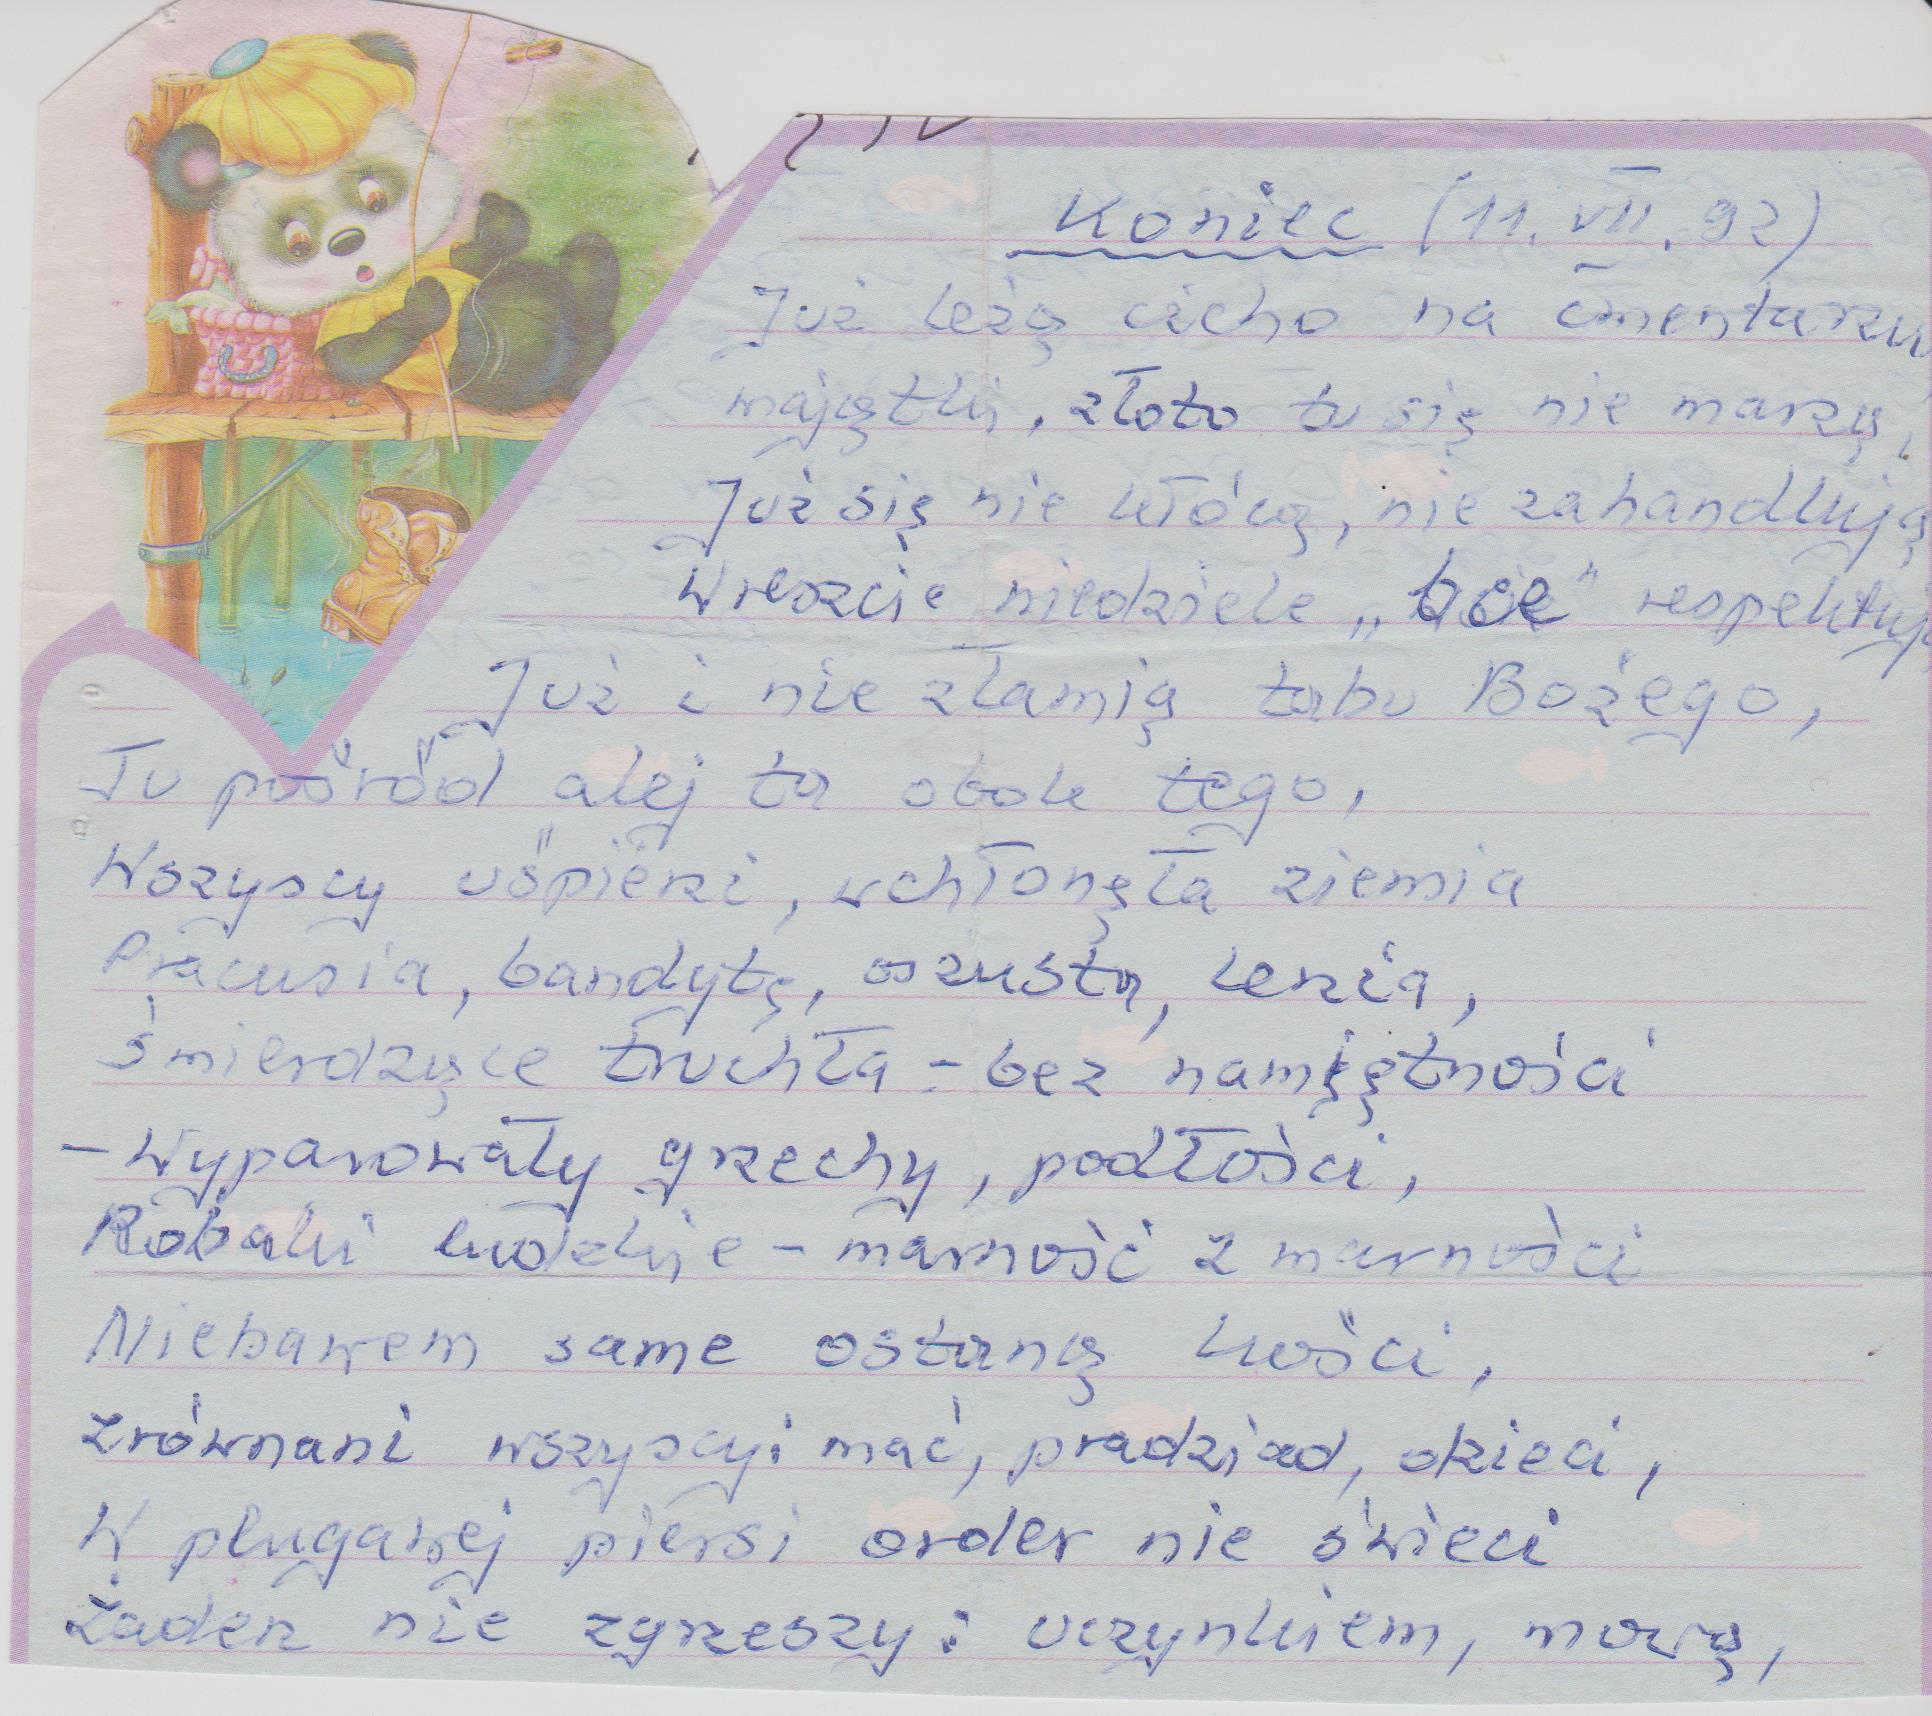 Koniec (11.VII.92)
Już leżą cicho na cmentarzu
majątki, złoto tu się nie marzą,
Już się nie kłócą, nie zahandlują
Wreszcie niedziele „bce” respektują
Już i nie złamią tabu Bożego,
Tu pośród alej ta obok tego,
Wszyscy uśpieni, wchłonęła ziemia
Pracusia, bandytę, oszusta, lenia,
śmierdzące truchła – bez namiętności
– Wyparowały grzechy, podłości,
Robaki kudelkie – marność z marności
Niebawem same ostaną kości,
Zrównani wszyscy: mać, pradziad, dzieci,
W plugawej piersi order nie świeci
Żaden nie zgrzeszy: uczynkiem, mową,